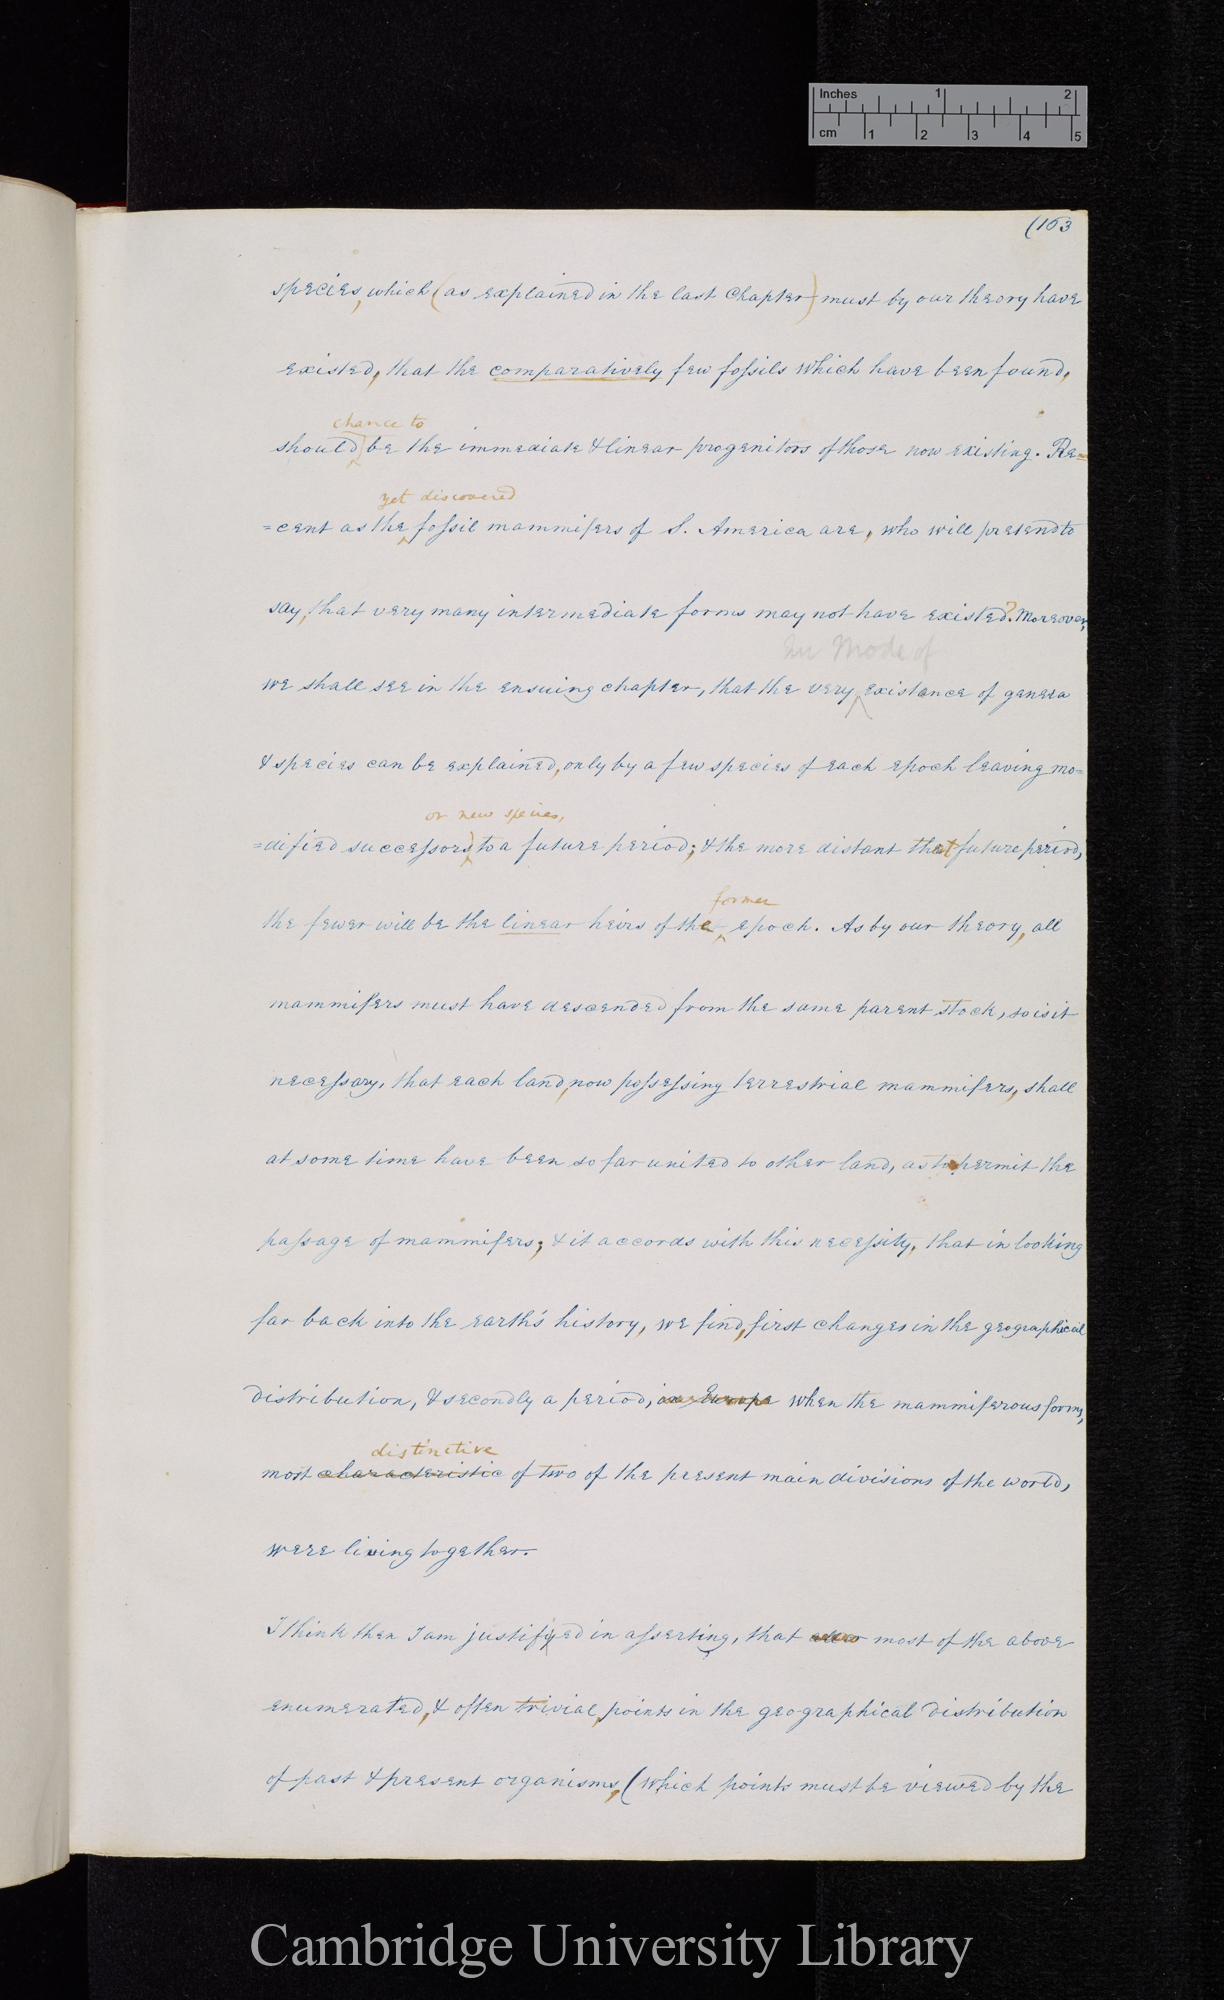 Inches 1 2
cm 1 2 3 4 5
(163
species, which (as explained in the last Chapter) must by our theory have
existed, that the comparatively few fossils which have been found,
chance to
should be the immediate & linear progenitors of those now existing. Re=
yet discovered
=cent as the fossil mammifers of S. America are, who will pretend to
say, that very many intermediate forms may not have existed? Moreover,
Mode of
we shall see in the ensuing chapter, that the very existance of genera
& species can be explained, only by a few species of each epoch leaving mo=
or new species,
=dified successors, to a future period; & the more distant that future period,
former
the fewer will be the linear heirs of the epoch. As by our theory, all
mammifers must have descended from the same parent stock, so is it
necessary, that each land, now possessing terrestrial mammifers, shall
at some time have been so far united to other land, as to permit the
passage of mammifers; & it accords with this necessity, that in looking
far back into the earth's history, we find, first changes in the geographical
distribution, & secondly a period, in Europe when the mammiferous forms,
distinctive
most characteristic of two of the present main divisions of the world,
were living together.
I think then I am justifyed in asserting, that most of the above
enumerated, & often trivial, points in the geographical distribution
of past & present organisms, (which points must be viewed by the
Cambridge University Library